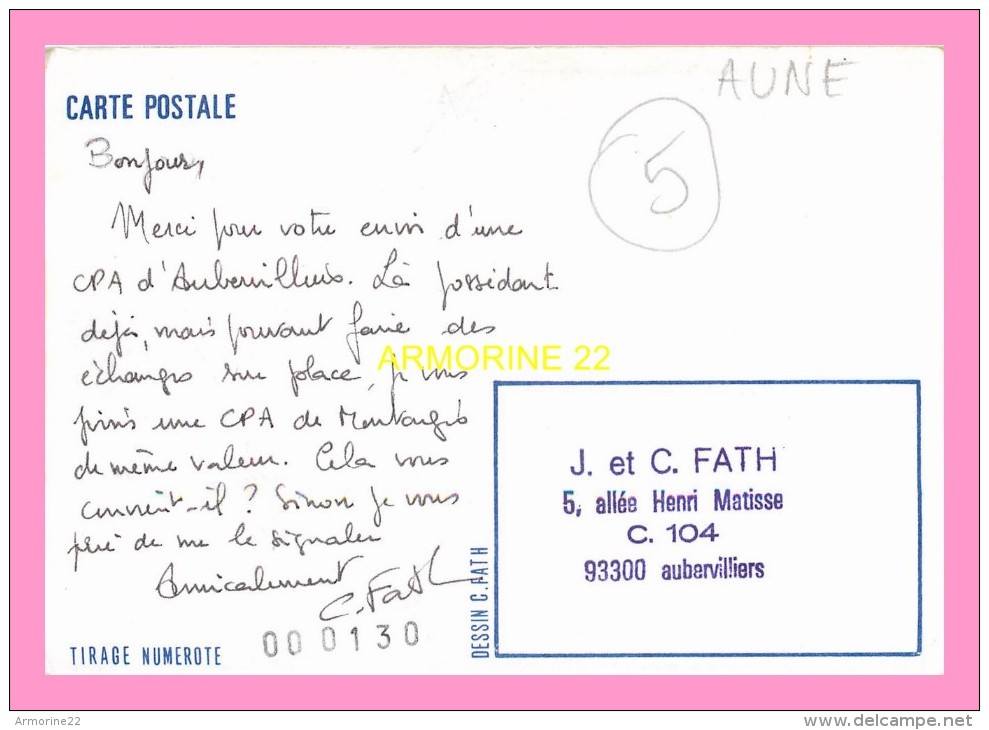 AUNE
CARTE POSTALE
5
Bonjour,
Merci pour votre envoi d'une
CPA d'Aubervilliers. La possédant
déjà, mais pouvant faire des
échanges sur place, je vous
joins une CPA de Montargis
de même valeur. Cela vous
convient-il ? Sinon je vous
prie de me le signaler
Amicalement
C. Fath
ARMORINE 22
J. et C. FATH
5, allée Henri Matisse
C. 104
93300 aubervilliers
DESSIN C. FATH
TIRAGE NUMEROTE
000130
Armorine22
www.delcampe.net